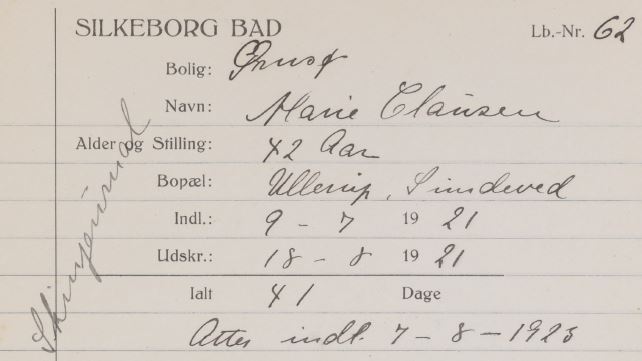 SILKEBORG BAD
Lb.-Nr. 62
Bolig:
Navn: Marie Clausen
Alder og Stilling: 42 Aar
Bopæl: Ullerup, Sundeved
Indl.: 9 - 7 1921
Udskr.: 18 - 8 1921
Ialt 41 Dage
Atter indl. 7 - 8 - 1923